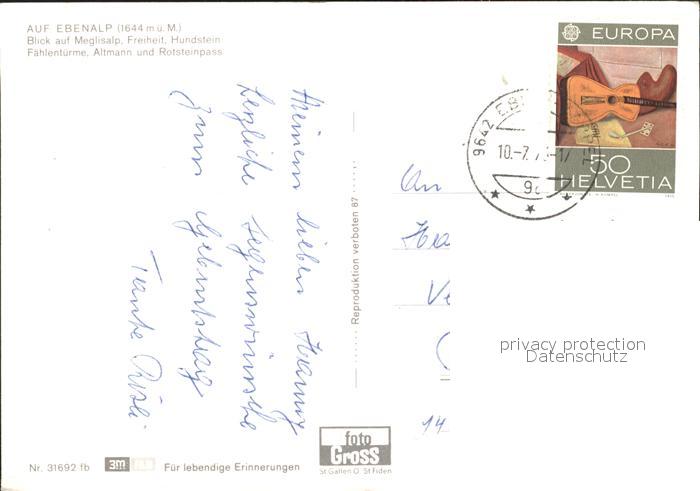 AUF EBENALP (1644 m ü. M.)
Blick auf Meglisalp, Freiheit, Hundstein
Fählentürme, Altmann und Rotsteinpass
EUROPA
50
HELVETIA
9642
10.-7.
Meinem lieben Hanny
herzliche Segenswünsche
zum Geburtstag
Tante Rösli
Reproduktion verboten 87
An
Ha
Ve
14
privacy protection
Datenschutz
foto
Gross
St Gallen O. St Fiden
Nr. 31692 fb
3m
Für lebendige Erinnerungen